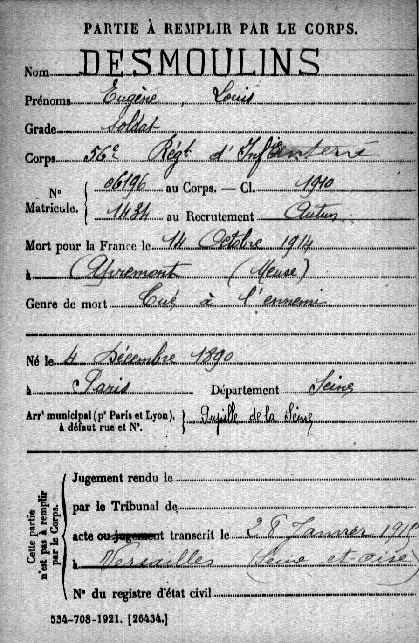 PARTIE À REMPLIR PAR LE CORPS.
Nom DESMOULINS
Prénoms Eugène, Louis
Grade Soldat
Corps 56e Régt d'Infanterie
N° Matricule. { 06196 au Corps. — Cl. 1910
1434 au Recrutement Autun
Mort pour la France le 14 Octobre 1914
à Apremont (Meuse)
Genre de mort Tué à l'ennemi
Né le 4 Décembre 1890
à Paris Département Seine
Arrt municipal (pr Paris et Lyon), à défaut rue et N°. } Pupille de la Seine
Cette partie n'est pas à remplir par le Corps.
Jugement rendu le
par le Tribunal de
acte ou jugement transcrit le 28 Janvier
à Versailles (Seine et Oise)
N° du registre d'état civil
534-708-1921. [26434.]